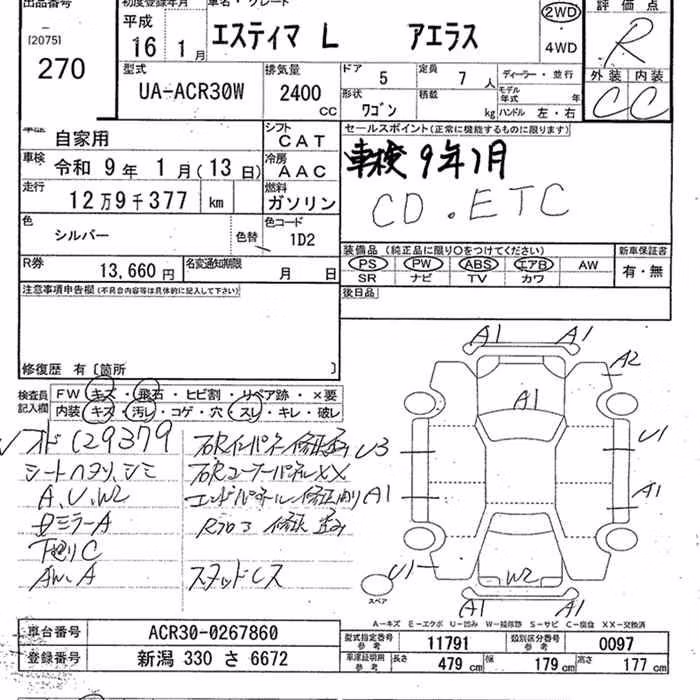 出品番号
[2075]
270
初度登録年月
平成
16 1 月
車名・グレード
エスティマ L アエラス
2WD
・
4WD
評価点
R
外装 内装
C C
型式
UA-ACR30W
排気量
2400
CC
ドア 5
定員 7 人
ディーラー・並行
形状 ワゴン
積載 kg
モデル年式 年
ハンドル 左・右
車歴 自家用
シフト CAT
セールスポイント(正常に機能するものに限ります)
車検 令和 9 年 1 月(13 日)
冷房 AAC
車検 9年1月
走行
12万9千377 km
燃料
ガソリン
CD . ETC
色
シルバー
色替
色コード
1D2
装備品(純正品に限り○をつけてください)
新車保証書
PS PW ABS エアB AW
SR ナビ TV カワ
有・無
R券 13,660 円
名変通知期限 月 日
後日品
注意事項申告欄(不具合内容等は具体的に記入して下さい)
修復歴 有〔箇所 〕
検査員
記入欄
FW キズ・飛石・ヒビ割・リペア跡・×要
内装 キズ・汚レ・コゲ・穴・スレ・キレ・破レ
(129379
シートヘタリ、シミ
A、U、W2
ミラーA
下廻りC
AW、A
右Rコーナーパネル××
エンドパネル
スタッドレス
A1 A1
A2
A1
U3
U1
A1
A1
U1
W2
A1 A1
スペア
A-キズ E-エクボ U-凹み W-補修跡 S-サビ C-腐食 XX-交換済
車台番号 ACR30-0267860
登録番号 新潟 330 さ 6672
型式指定番号
参考
11791
類別区分番号
参考
0097
車庫証明用
参考
長さ 479 cm
幅 179 cm
高さ 177 cm